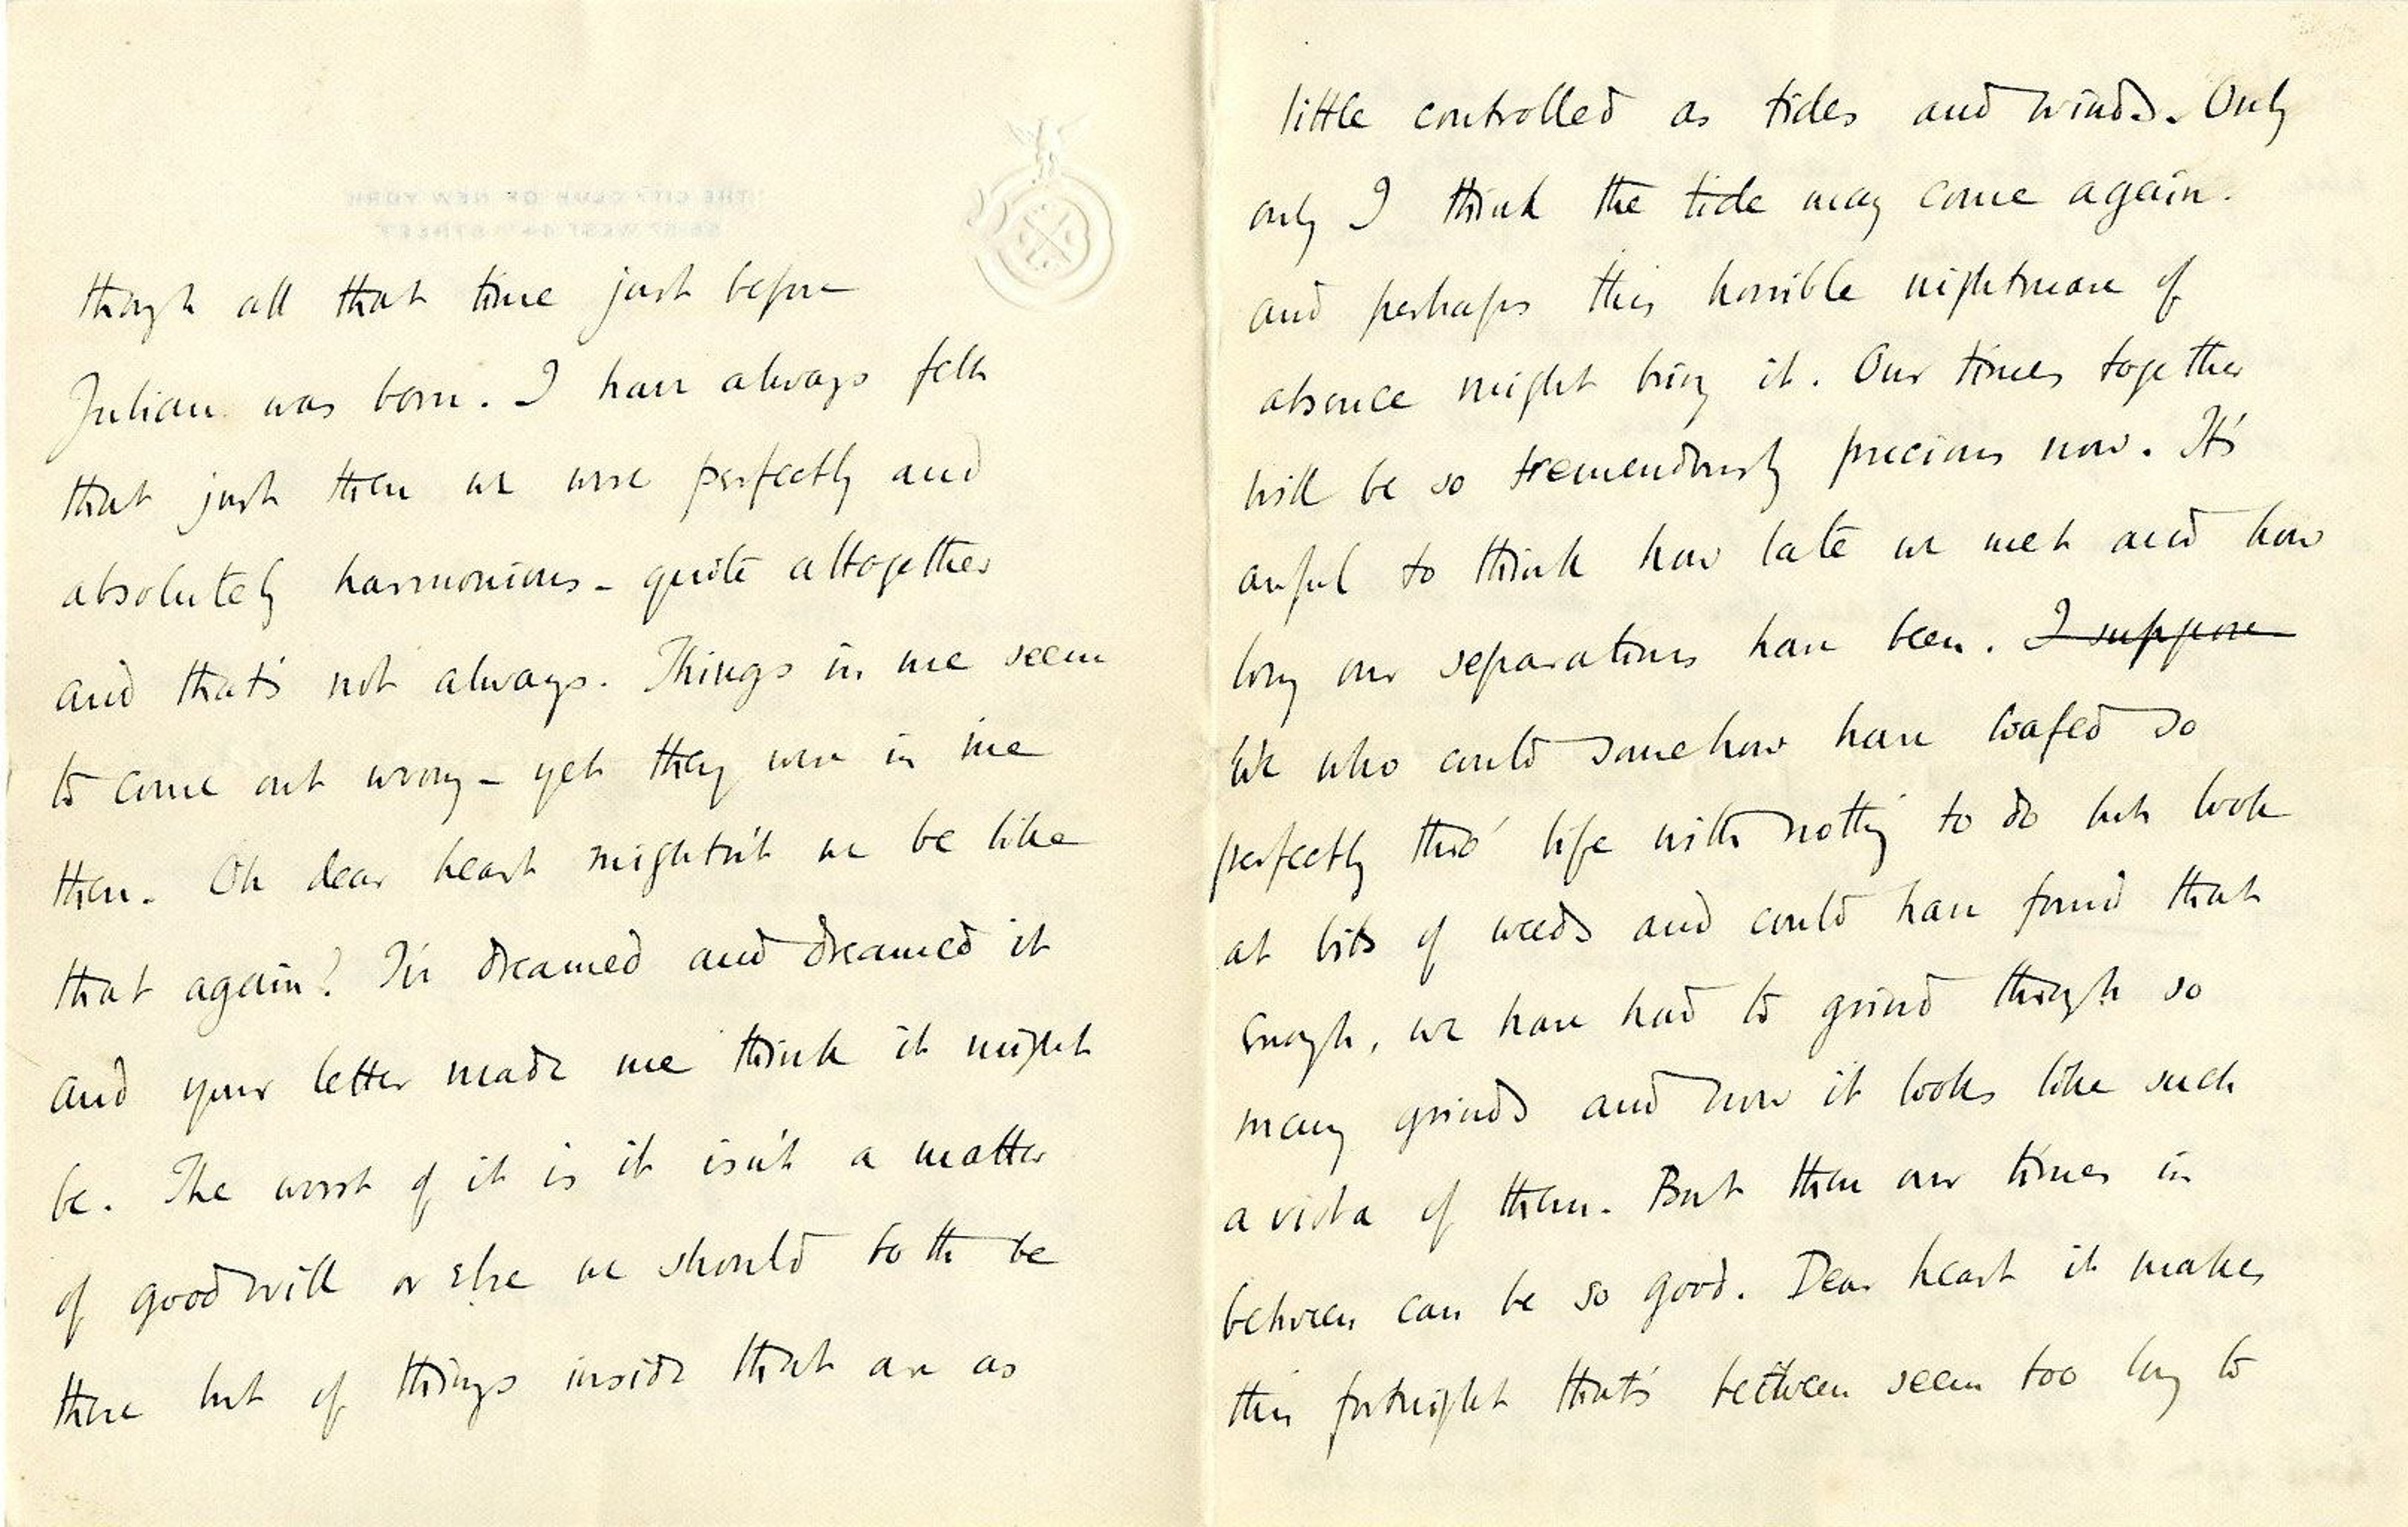 THE CITY CLUB OF NEW YORK
55-57 WEST 44TH STREET
through all that time just before
Julian was born. I have always felt
that just then we were perfectly and
absolutely harmonious - quite altogether
and that's not always. Things in me seem
to come out wrong - yet they were in me
then. Oh dear heart mightn't we be like
that again? I've dreamed and dreamed it
and your letter made me think it might
be. The worst of it is it isn't a matter
of good will or else we should both be
there but of things inside that are as
little controlled as tides and winds. Only
only I think the tide may come again.
and perhaps this horrible nightmare of
absence might bring it. Our times together
will be so tremendously precious now. It's
awful to think how late we met and how
long our separations have been. I suppose
We who could somehow have loafed so
perfectly thro' life with nothing to do but look
at bits of weeds and could have found that
enough, we have had to grind through so
many grinds and now it looks like such
a vista of them. But then our times in
between can be so good. Dear heart it makes
this fortnight that's between seem too long to